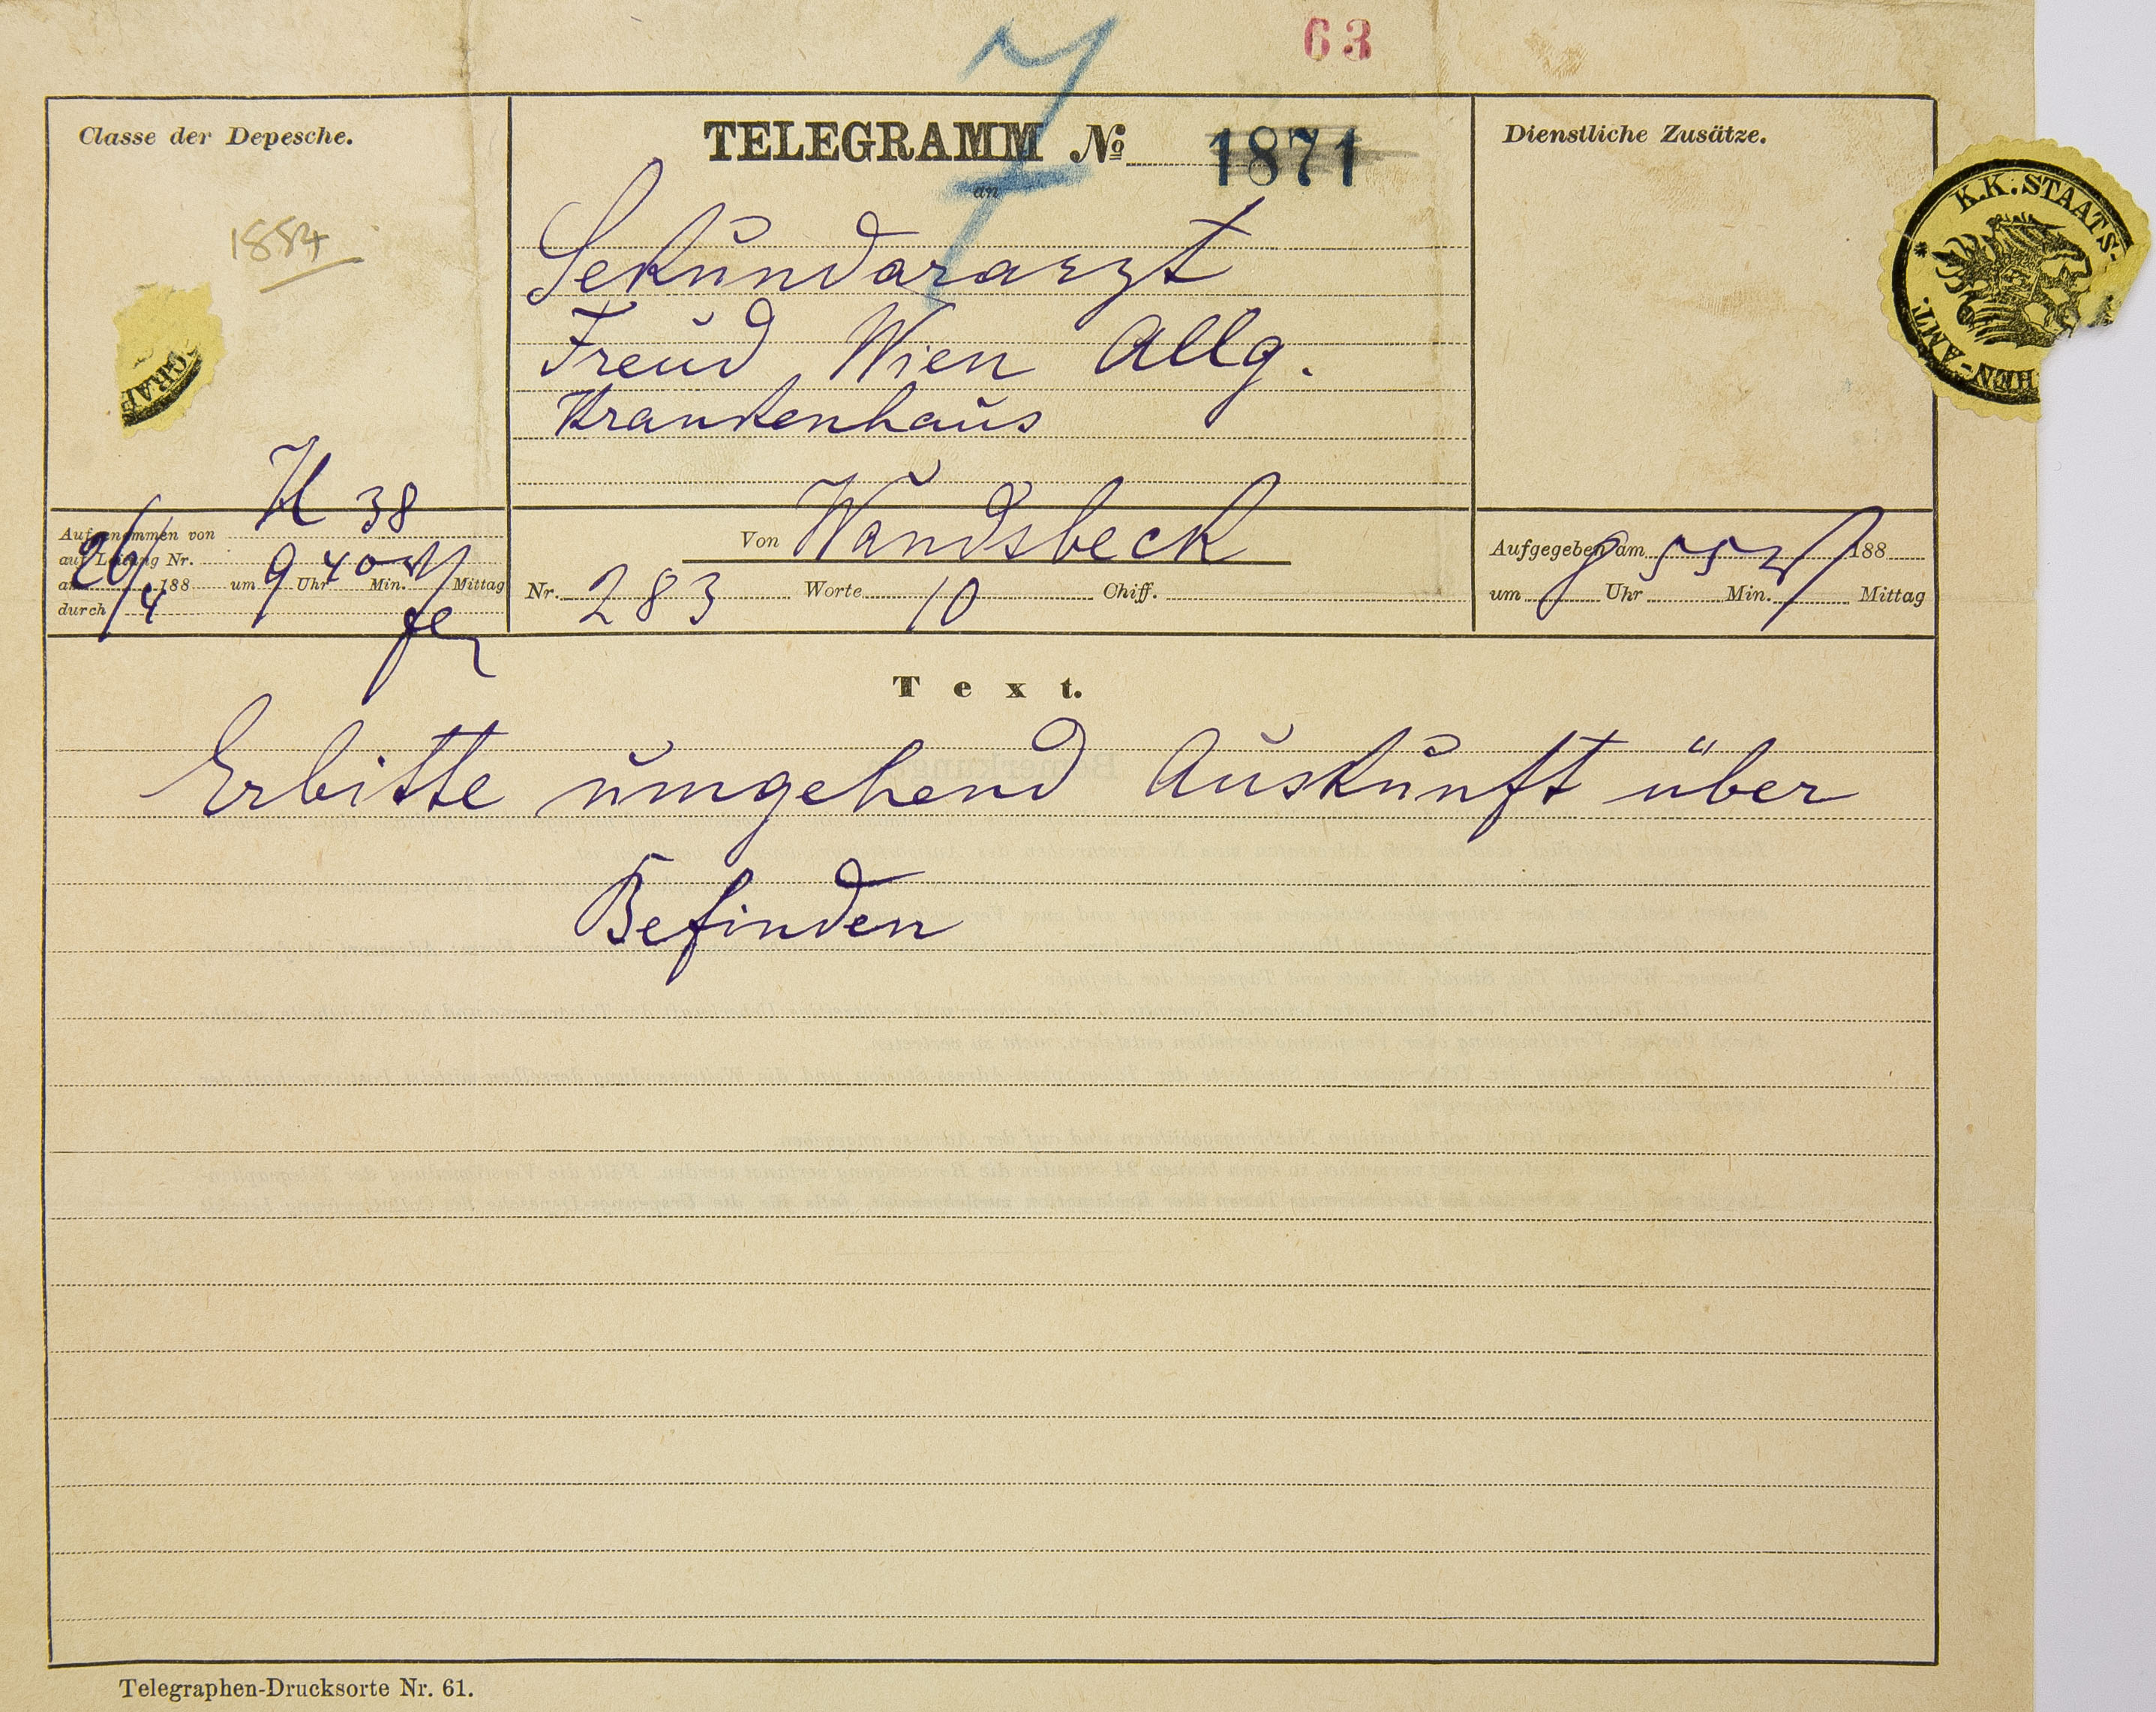 63
7
Classe der Depesche.
1884
GRAF
TELEGRAMM No 1871
an
Sekundararzt
Freud Wien Allg.
Krankenhaus
Dienstliche Zusätze.
K.K. STAATS-
HEN-AMT.
H 38
Aufgenommen von
auf Leitung Nr.
am 26/4 188 um 9 Uhr 40 Min. Mittag
durch
Von Wandsbeck
Nr. 283 Worte 10 Chiff.
Aufgegeben am 188
um 9 Uhr 55 Min. Mittag
Text.
Erbitte umgehend Auskunft über
Befinden
Telegraphen-Drucksorte Nr. 61.